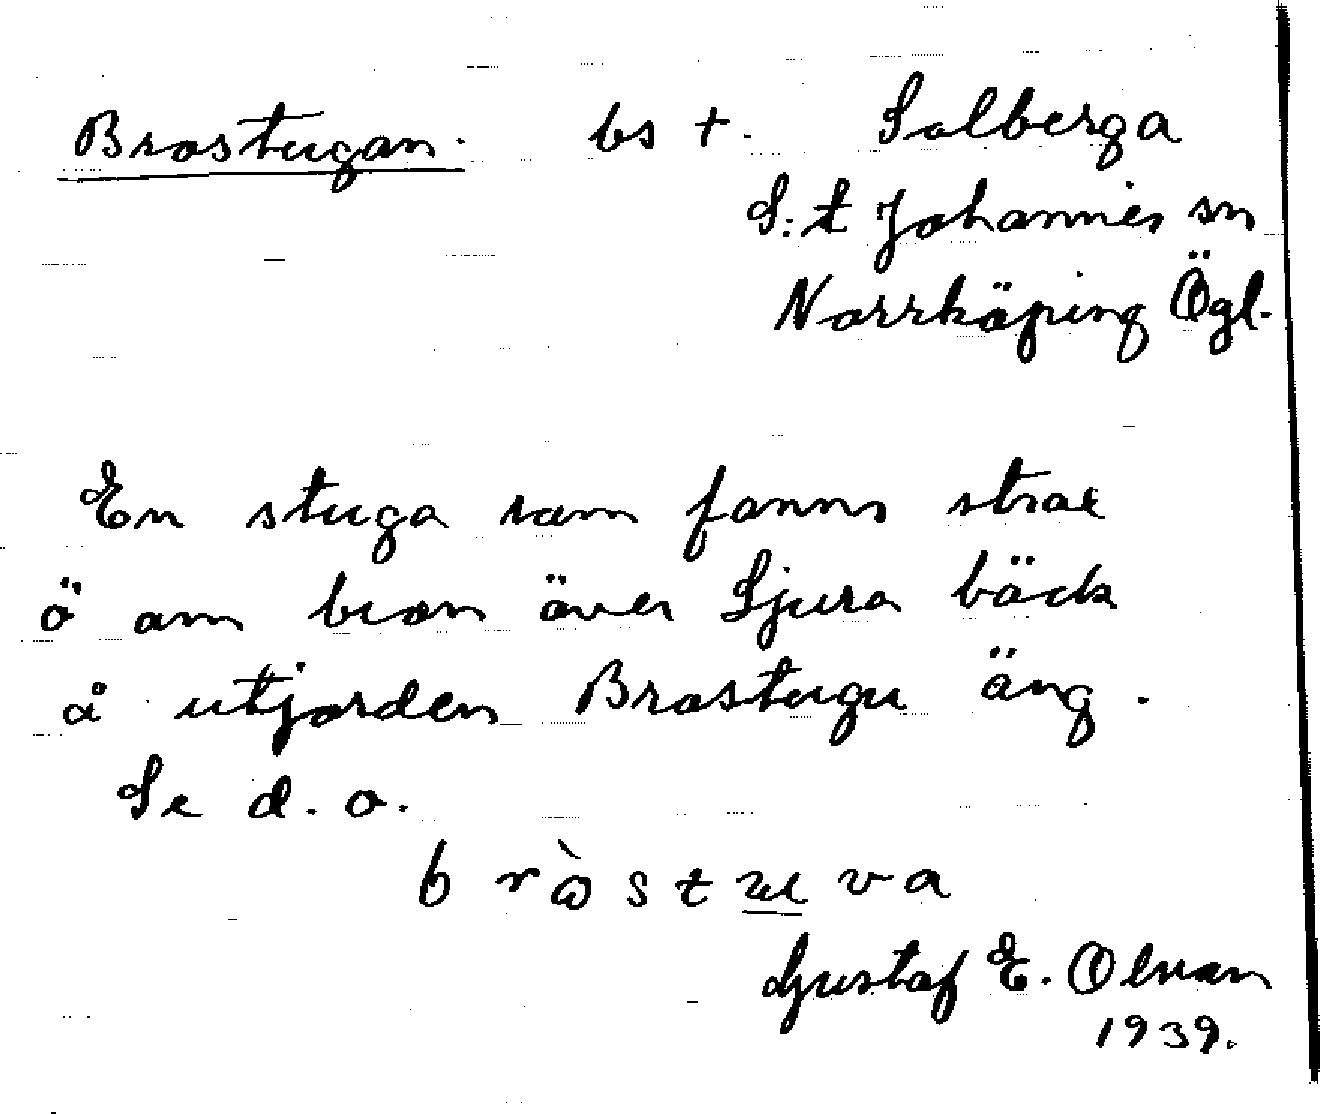 Brostugan. bs †. Solberga
S:t Johannes sn
Norrköping Ögl.
En stuga som fanns strax
ö om bron över Ljura bäck
å utjorden Brostugu äng.
Se d.o.
bròstuva
Gustaf E. Olsson
1939.